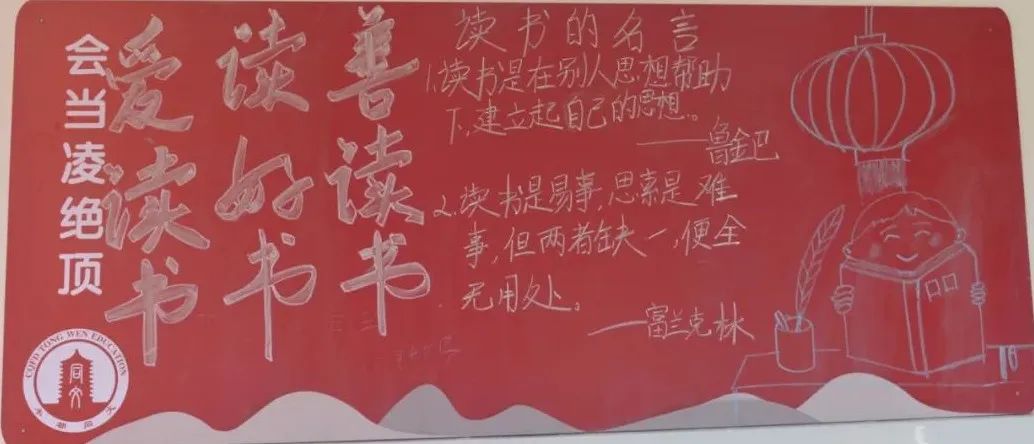 会当凌绝顶
爱读书
读好书
善读书
读书的名言
1.读书是在别人思想帮助
下,建立起自己的思想。
——鲁金巴
2.读书是易事,思索是难
事,但两者缺一,便全
无用处。
——富兰克林
CQFD TONG WEN EDUCATION
同文